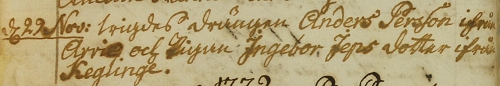 d. 29 Nov: wigdes drängen Anders Person ifrån
Arrie och Pigan Ingebor Jeps dotter ifrån
Keglinge.